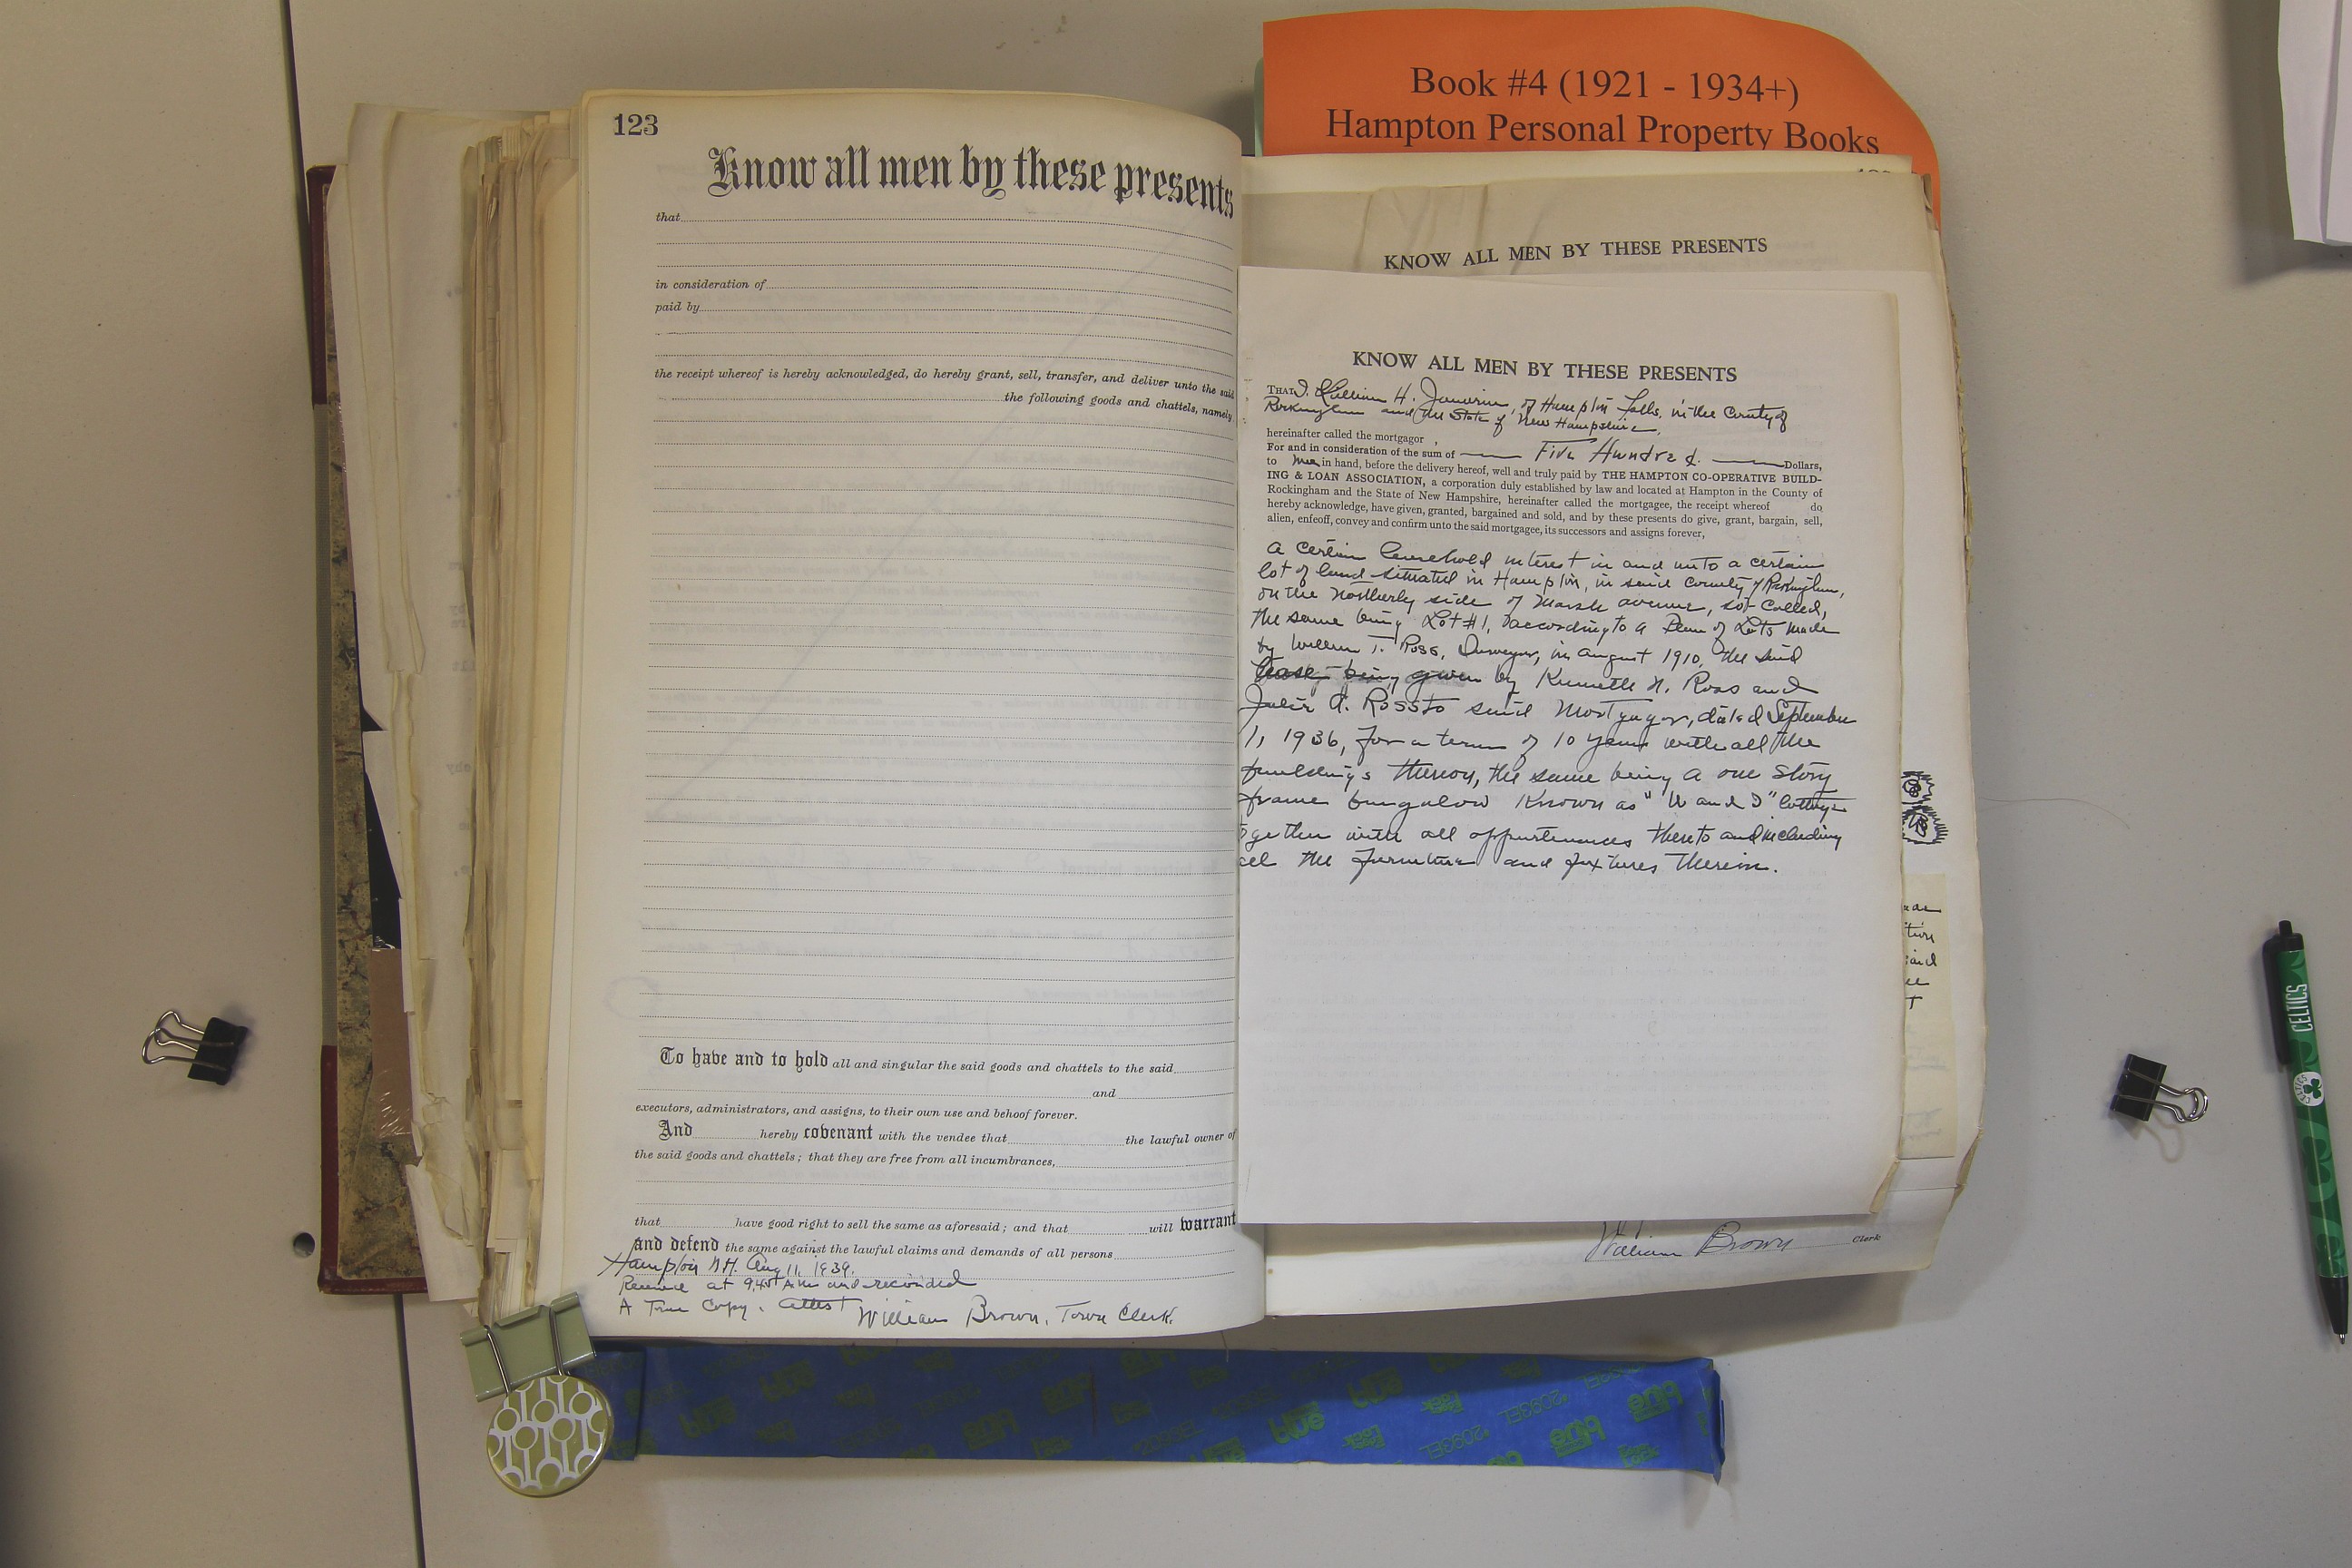 Book #4 (1921 - 1934+)
Hampton Personal Property Books
123
Know all men by these presents
that
in consideration of
paid by
the receipt whereof is hereby acknowledged, do hereby grant, sell, transfer, and deliver unto the said
the following goods and chattels, namely,
To have and to hold all and singular the said goods and chattels to the said
and
executors, administrators, and assigns, to their own use and behoof forever.
And hereby covenant with the vendee that the lawful owner of
the said goods and chattels; that they are free from all incumbrances,
that have good right to sell the same as aforesaid; and that will warrant
and defend the same against the lawful claims and demands of all persons
Hampton N.H. Aug 11, 1939.
Received at 9.45 A.M. and recorded
A True Copy. Attest William Brown, Town Clerk.
KNOW ALL MEN BY THESE PRESENTS
KNOW ALL MEN BY THESE PRESENTS
THAT I, William H. Janvrin, of Hampton Falls, in the County of
Rockingham and the State of New Hampshire,
hereinafter called the mortgagor ,
For and in consideration of the sum of Five Hundred Dollars,
to me in hand, before the delivery hereof, well and truly paid by THE HAMPTON CO-OPERATIVE BUILD-
ING & LOAN ASSOCIATION, a corporation duly established by law and located at Hampton in the County of
Rockingham and the State of New Hampshire, hereinafter called the mortgagee, the receipt whereof do
hereby acknowledge, have given, granted, bargained and sold, and by these presents do give, grant, bargain, sell,
alien, enfeoff, convey and confirm unto the said mortgagee, its successors and assigns forever,
A certain leasehold interest in and unto a certain
lot of land situated in Hampton, in said County of Rockingham,
on the Northerly side of Marsh avenue, so-called,
the same being Lot #1, according to a Plan of Lots made
by William T. Ross, Surveyor, in August 1910, the said
lease being given by Kenneth N. Ross and
Julia A. Ross to said Mortgagor, dated September
1, 1936, for a term of 10 years with all the
buildings thereon, the same being a one story
frame bungalow Known as "W and D" Cottage
together with all appurtenances thereto and including
all the furniture and fixtures therein.
William Brown Clerk
CELTICS
CELTICS